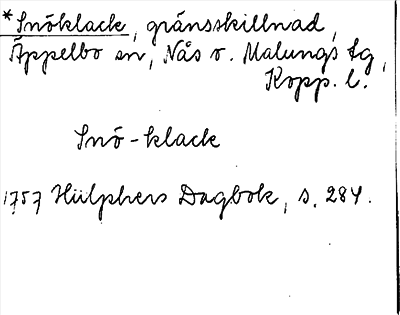 *Snöklack, gränsskillnad,
Äppelbo sn, Nås o. Malungs tg,
Kopp. l.
Snö-klack
1757 Hülphers Dagbok, s. 284.